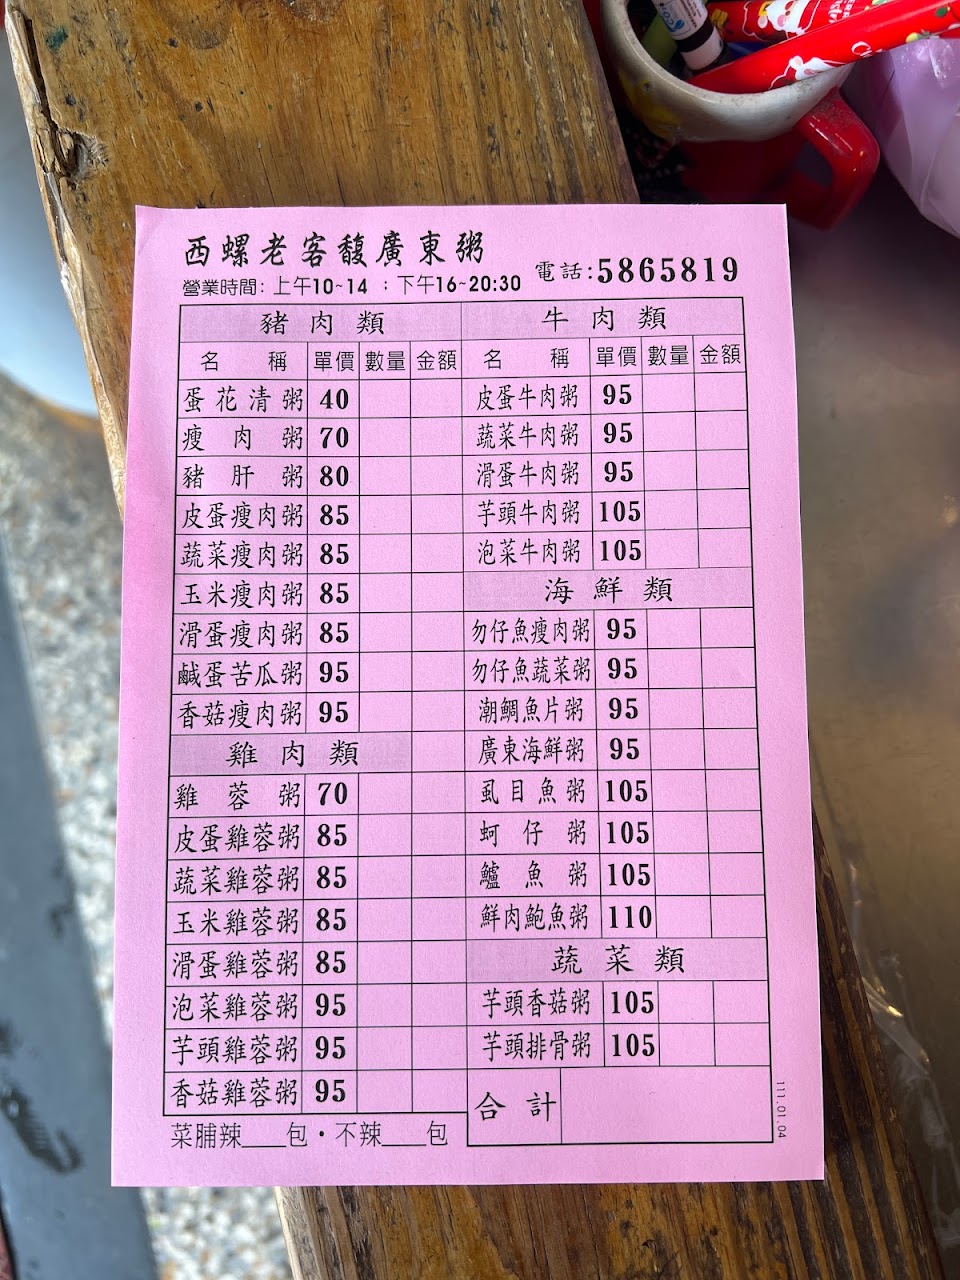 西螺老客馥廣東粥
營業時間: 上午10~14 ；下午16~20:30
電話:5865819
豬肉類
名稱 單價 數量 金額
蛋花清粥 40
瘦肉粥 70
豬肝粥 80
皮蛋瘦肉粥 85
蔬菜瘦肉粥 85
玉米瘦肉粥 85
滑蛋瘦肉粥 85
鹹蛋苦瓜粥 95
香菇瘦肉粥 95
雞肉類
雞蓉粥 70
皮蛋雞蓉粥 85
蔬菜雞蓉粥 85
玉米雞蓉粥 85
滑蛋雞蓉粥 85
泡菜雞蓉粥 95
芋頭雞蓉粥 95
香菇雞蓉粥 95
菜脯辣___包・不辣___包
牛肉類
名稱 單價 數量 金額
皮蛋牛肉粥 95
蔬菜牛肉粥 95
滑蛋牛肉粥 95
芋頭牛肉粥 105
泡菜牛肉粥 105
海鮮類
勿仔魚瘦肉粥 95
勿仔魚蔬菜粥 95
潮鯛魚片粥 95
廣東海鮮粥 95
虱目魚粥 105
蚵仔粥 105
鱸魚粥 105
鮮肉鮑魚粥 110
蔬菜類
芋頭香菇粥 105
芋頭排骨粥 105
合計
111.01.04